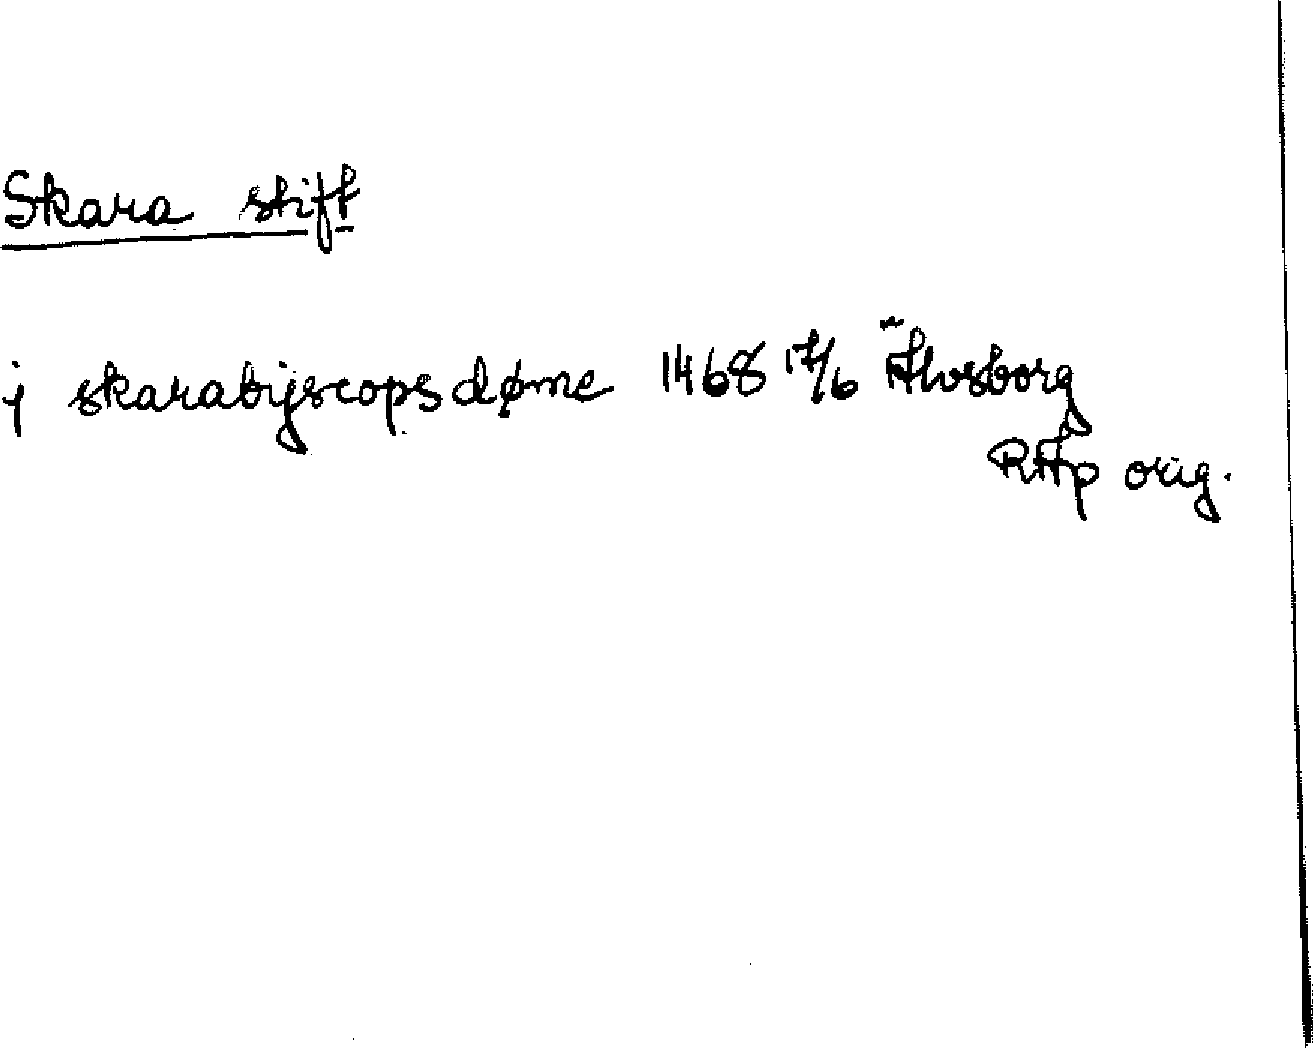 Skara stift
j skarabijscopsdøme 1468 17/6 Älvsborg
RAp orig.